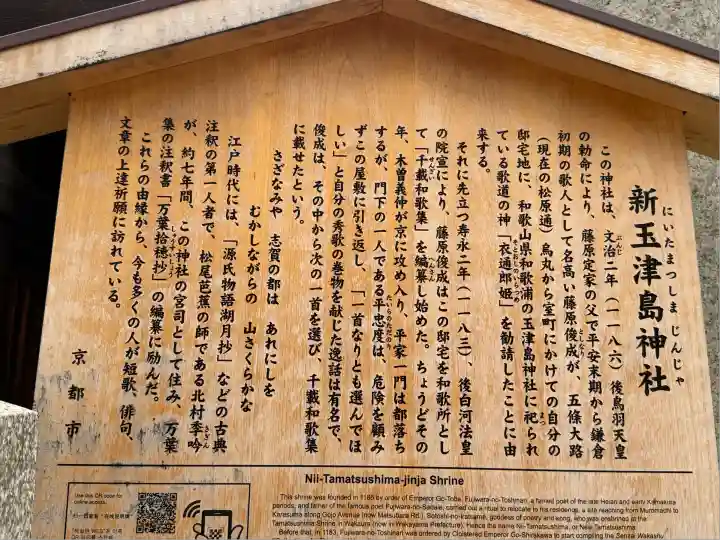 新玉津島神社
にいたまつしまじんじゃ
この神社は、文治二年(一一八六)後鳥羽天皇
の勅命により、藤原定家の父で平安末期から鎌倉
初期の歌人として名高い藤原俊成が、五條大路
(現在の松原通)烏丸から室町にかけての自分の
邸宅地に、和歌山県和歌浦の玉津島神社に祀られ
ている歌道の神「衣通郎姫」を勧請したことに由
来する。
それに先立つ寿永二年(一一八三)、後白河法皇
の院宣により、藤原俊成はこの邸宅を和歌所とし
て「千載和歌集」を編纂し始めた。ちょうどその
年、木曽義仲が京に攻め入り、平家一門は都落ち
するが、門下の一人である平忠度は、危険を顧み
ずこの屋敷に引き返し、「一首なりとも選んでほ
しい」と自分の秀歌の巻物を献じた逸話は有名で、
俊成は、その中から次の一首を選び、千載和歌集
に載せたという。
さざなみや 志賀の都は あれにしを
むかしながらの 山さくらかな
江戸時代には、「源氏物語湖月抄」などの古典
注釈の第一人者で、松尾芭蕉の師である北村季吟
が、約七年間、この神社の宮司として住み、万葉
集の注釈書「万葉拾穂抄」の編纂に励んだ。
これらの由縁から、今も多くの人が短歌、俳句、
文章の上達祈願に訪れている。
京都市
Nii-Tamatsushima-jinja Shrine
This shrine was founded in 1186 by order of Emperor Go-Toba. Fujiwara-no-Toshinari, a famed poet of the late Heian and early Kamakura
periods, and father of the famous poet Fujiwara-no-Sadaie, carried out a ritual to relocate to his residence, a site reaching from Muromachi to
Karasuma along Gojo Avenue (now Matsubara Rd.), Sotoshi-no-iratsume, goddess of poetry and song, who was enshrined at the
Tamatsushima Shrine in Wakaura (now in Wakayama Prefecture). Hence the name Nii-Tamatsushima, or New Tamatsushima.
Before that, in 1183, Fujiwara-no-Toshinari was ordered by Cloistered Emperor Go-Shirakawa to start compiling the Senzai Wakashu
Use this QR code for
online access.